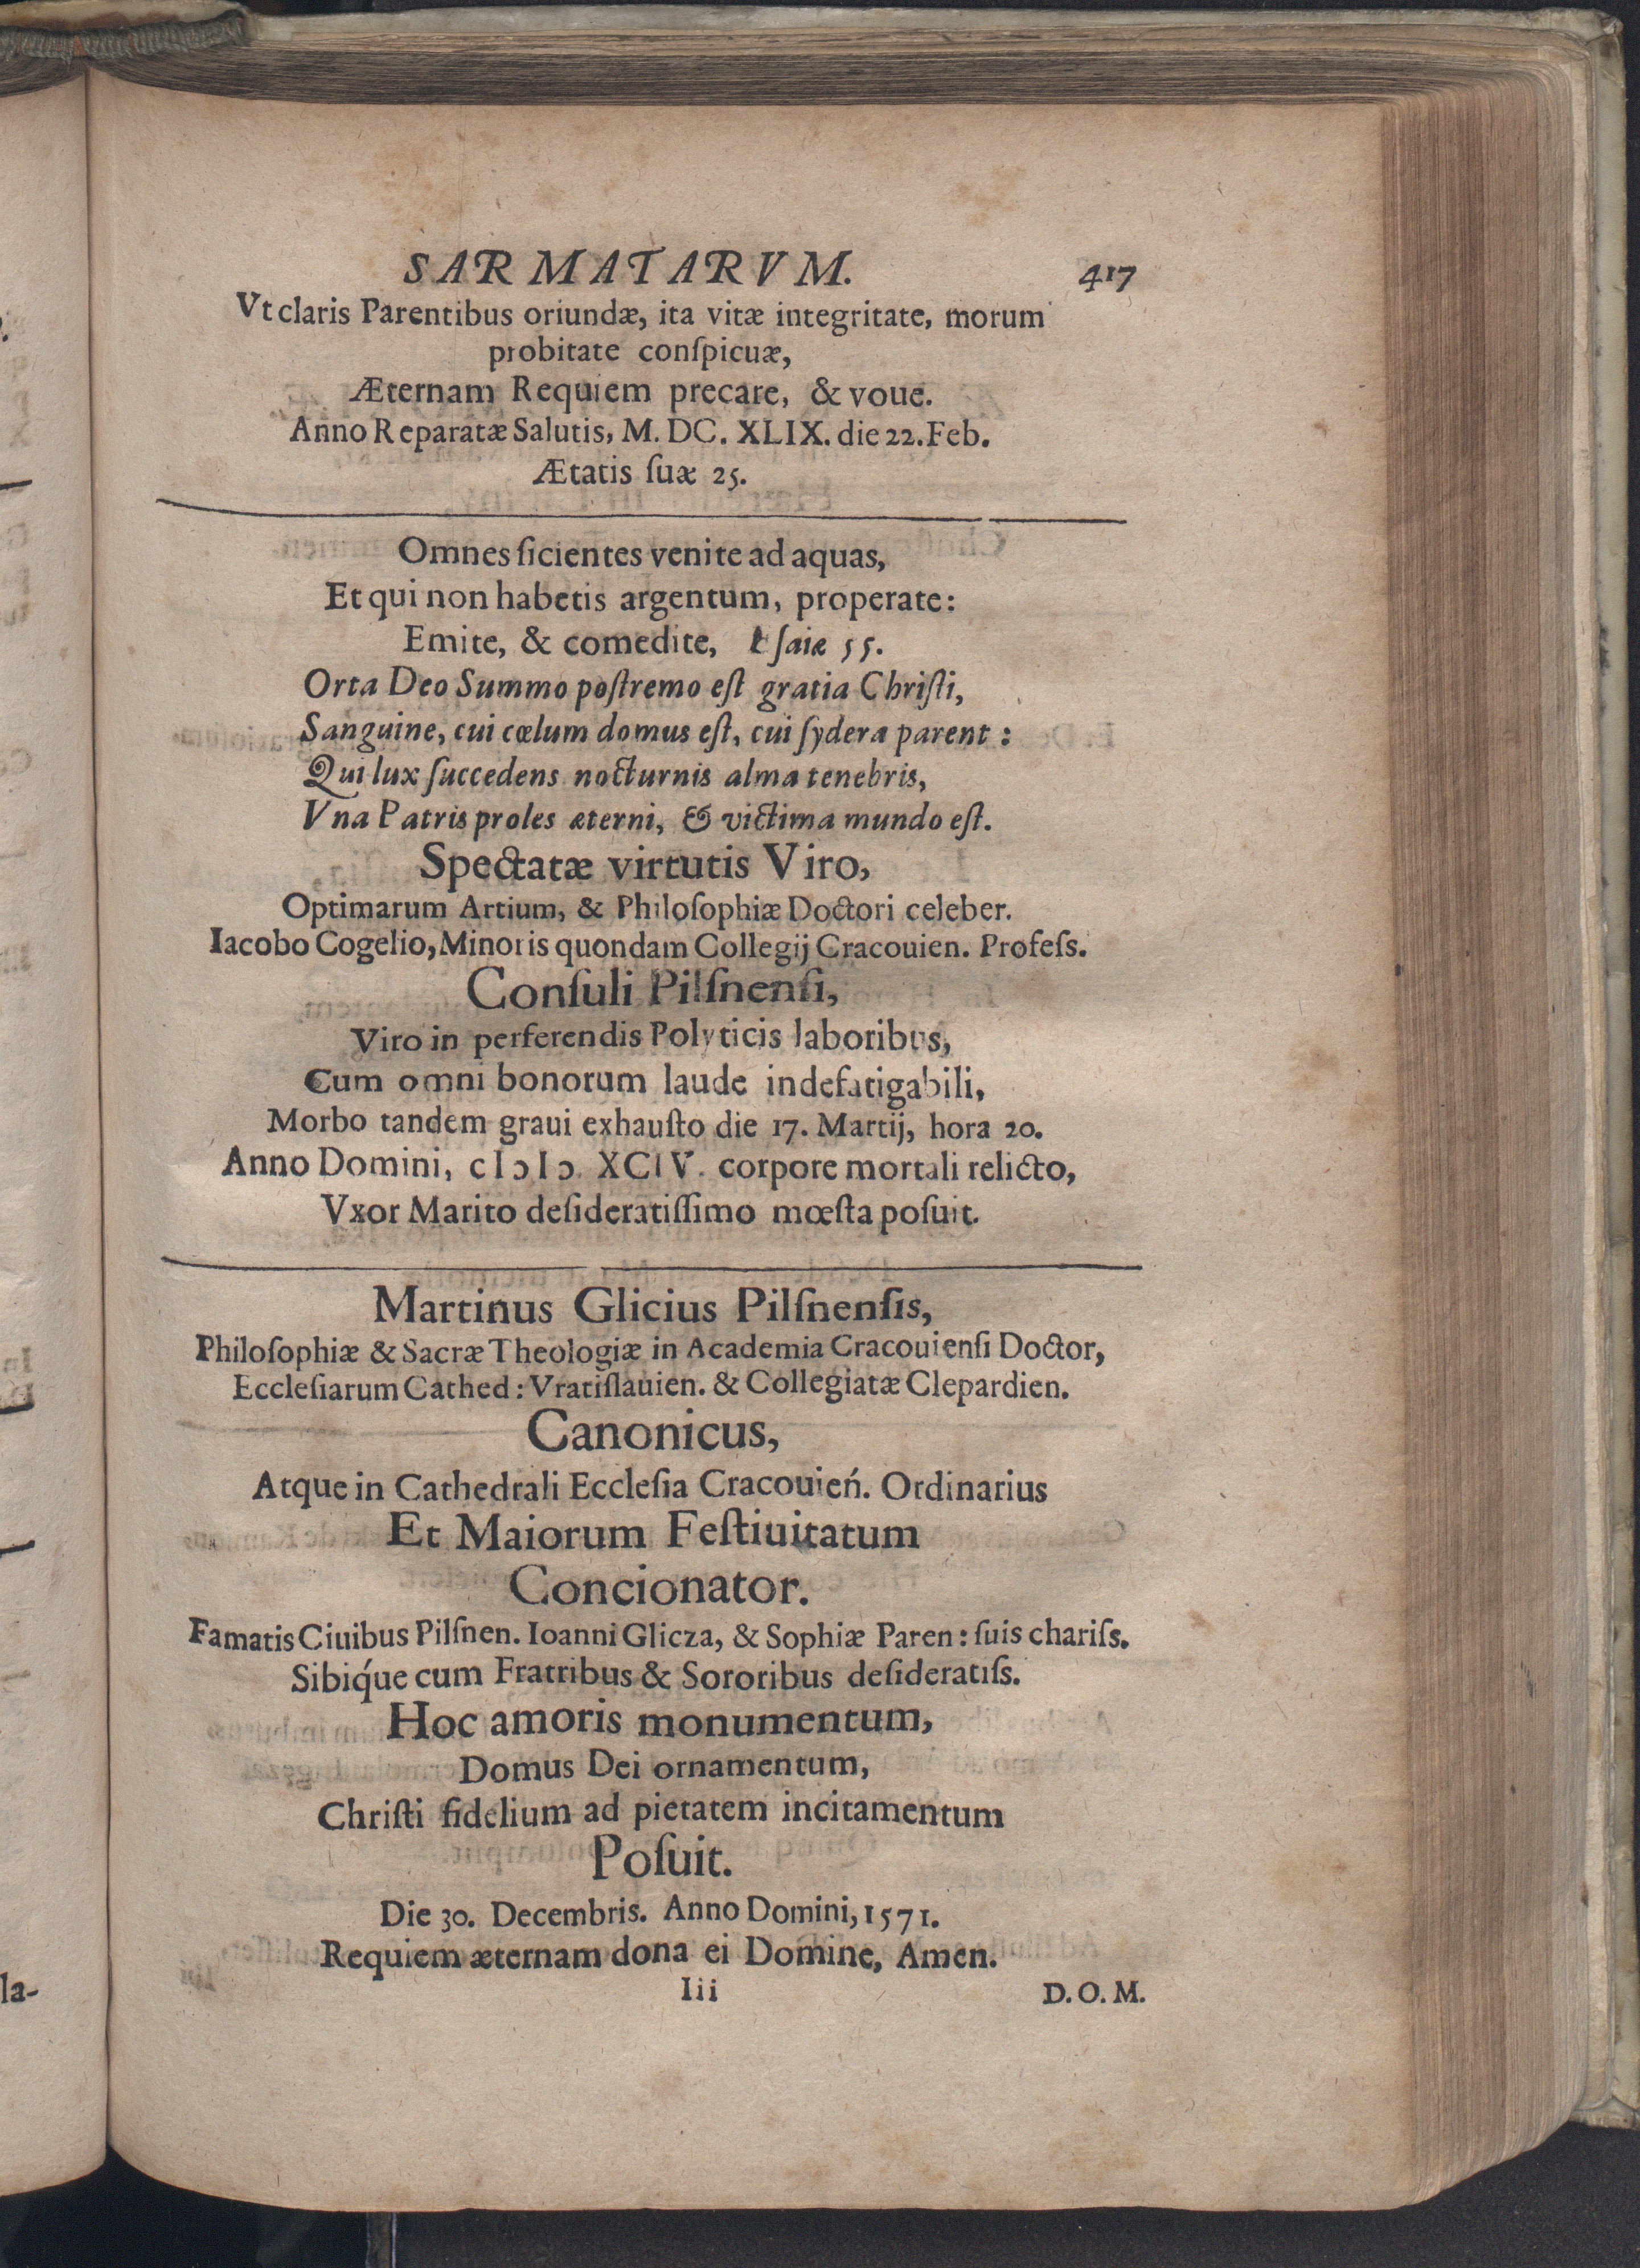 SARMATARVM. 417
Vt claris Parentibus oriundæ, ita vitæ integritate, morum
probitate conſpicuæ,
Æternam Requiem precare, & voue.
Anno Reparatæ Salutis, M. DC. XLIX. die 22. Feb.
Ætatis ſuæ 25.
Omnes ſicientes venite ad aquas,
Et qui non habetis argentum, properate:
Emite, & comedite, Eſaiæ 55.
Orta Deo Summo poſtremo eſt gratia Chriſti,
Sanguine, cui cœlum domus eſt, cui ſydera parent:
Qui lux ſuccedens nocturnis alma tenebris,
Vna Patris proles æterni, & victima mundo eſt.
Spectatæ virtutis Viro,
Optimarum Artium, & Philoſophiæ Doctori celeber.
Iacobo Cogelio, Minoris quondam Collegij Cracouien. Profeſs.
Conſuli Pilſnenſi,
Viro in perferendis Polyticis laboribus,
Cum omni bonorum laude indefatigabili,
Morbo tandem graui exhauſto die 17. Martij, hora 20.
Anno Domini, cIↄIↄ. XCIV. corpore mortali relicto,
Vxor Marito deſideratiſſimo mœſta poſuit.
Martinus Glicius Pilſnenſis,
Philoſophiæ & Sacræ Theologiæ in Academia Cracouienſi Doctor,
Eccleſiarum Cathed: Vratiſlauien. & Collegiatæ Clepardien.
Canonicus,
Atque in Cathedrali Eccleſia Cracouień. Ordinarius
Et Maiorum Feſtiuitatum
Concionator.
Famatis Ciuibus Pilſnen. Ioanni Glicza, & Sophiæ Paren: ſuis chariſs.
Sibiq́ue cum Fratribus & Sororibus deſideratiſs.
Hoc amoris monumentum,
Domus Dei ornamentum,
Chriſti fidelium ad pietatem incitamentum
Poſuit.
Die 30. Decembris. Anno Domini, 1571.
Requiem æternam dona ei Domine, Amen.
Iii D. O. M.
la-